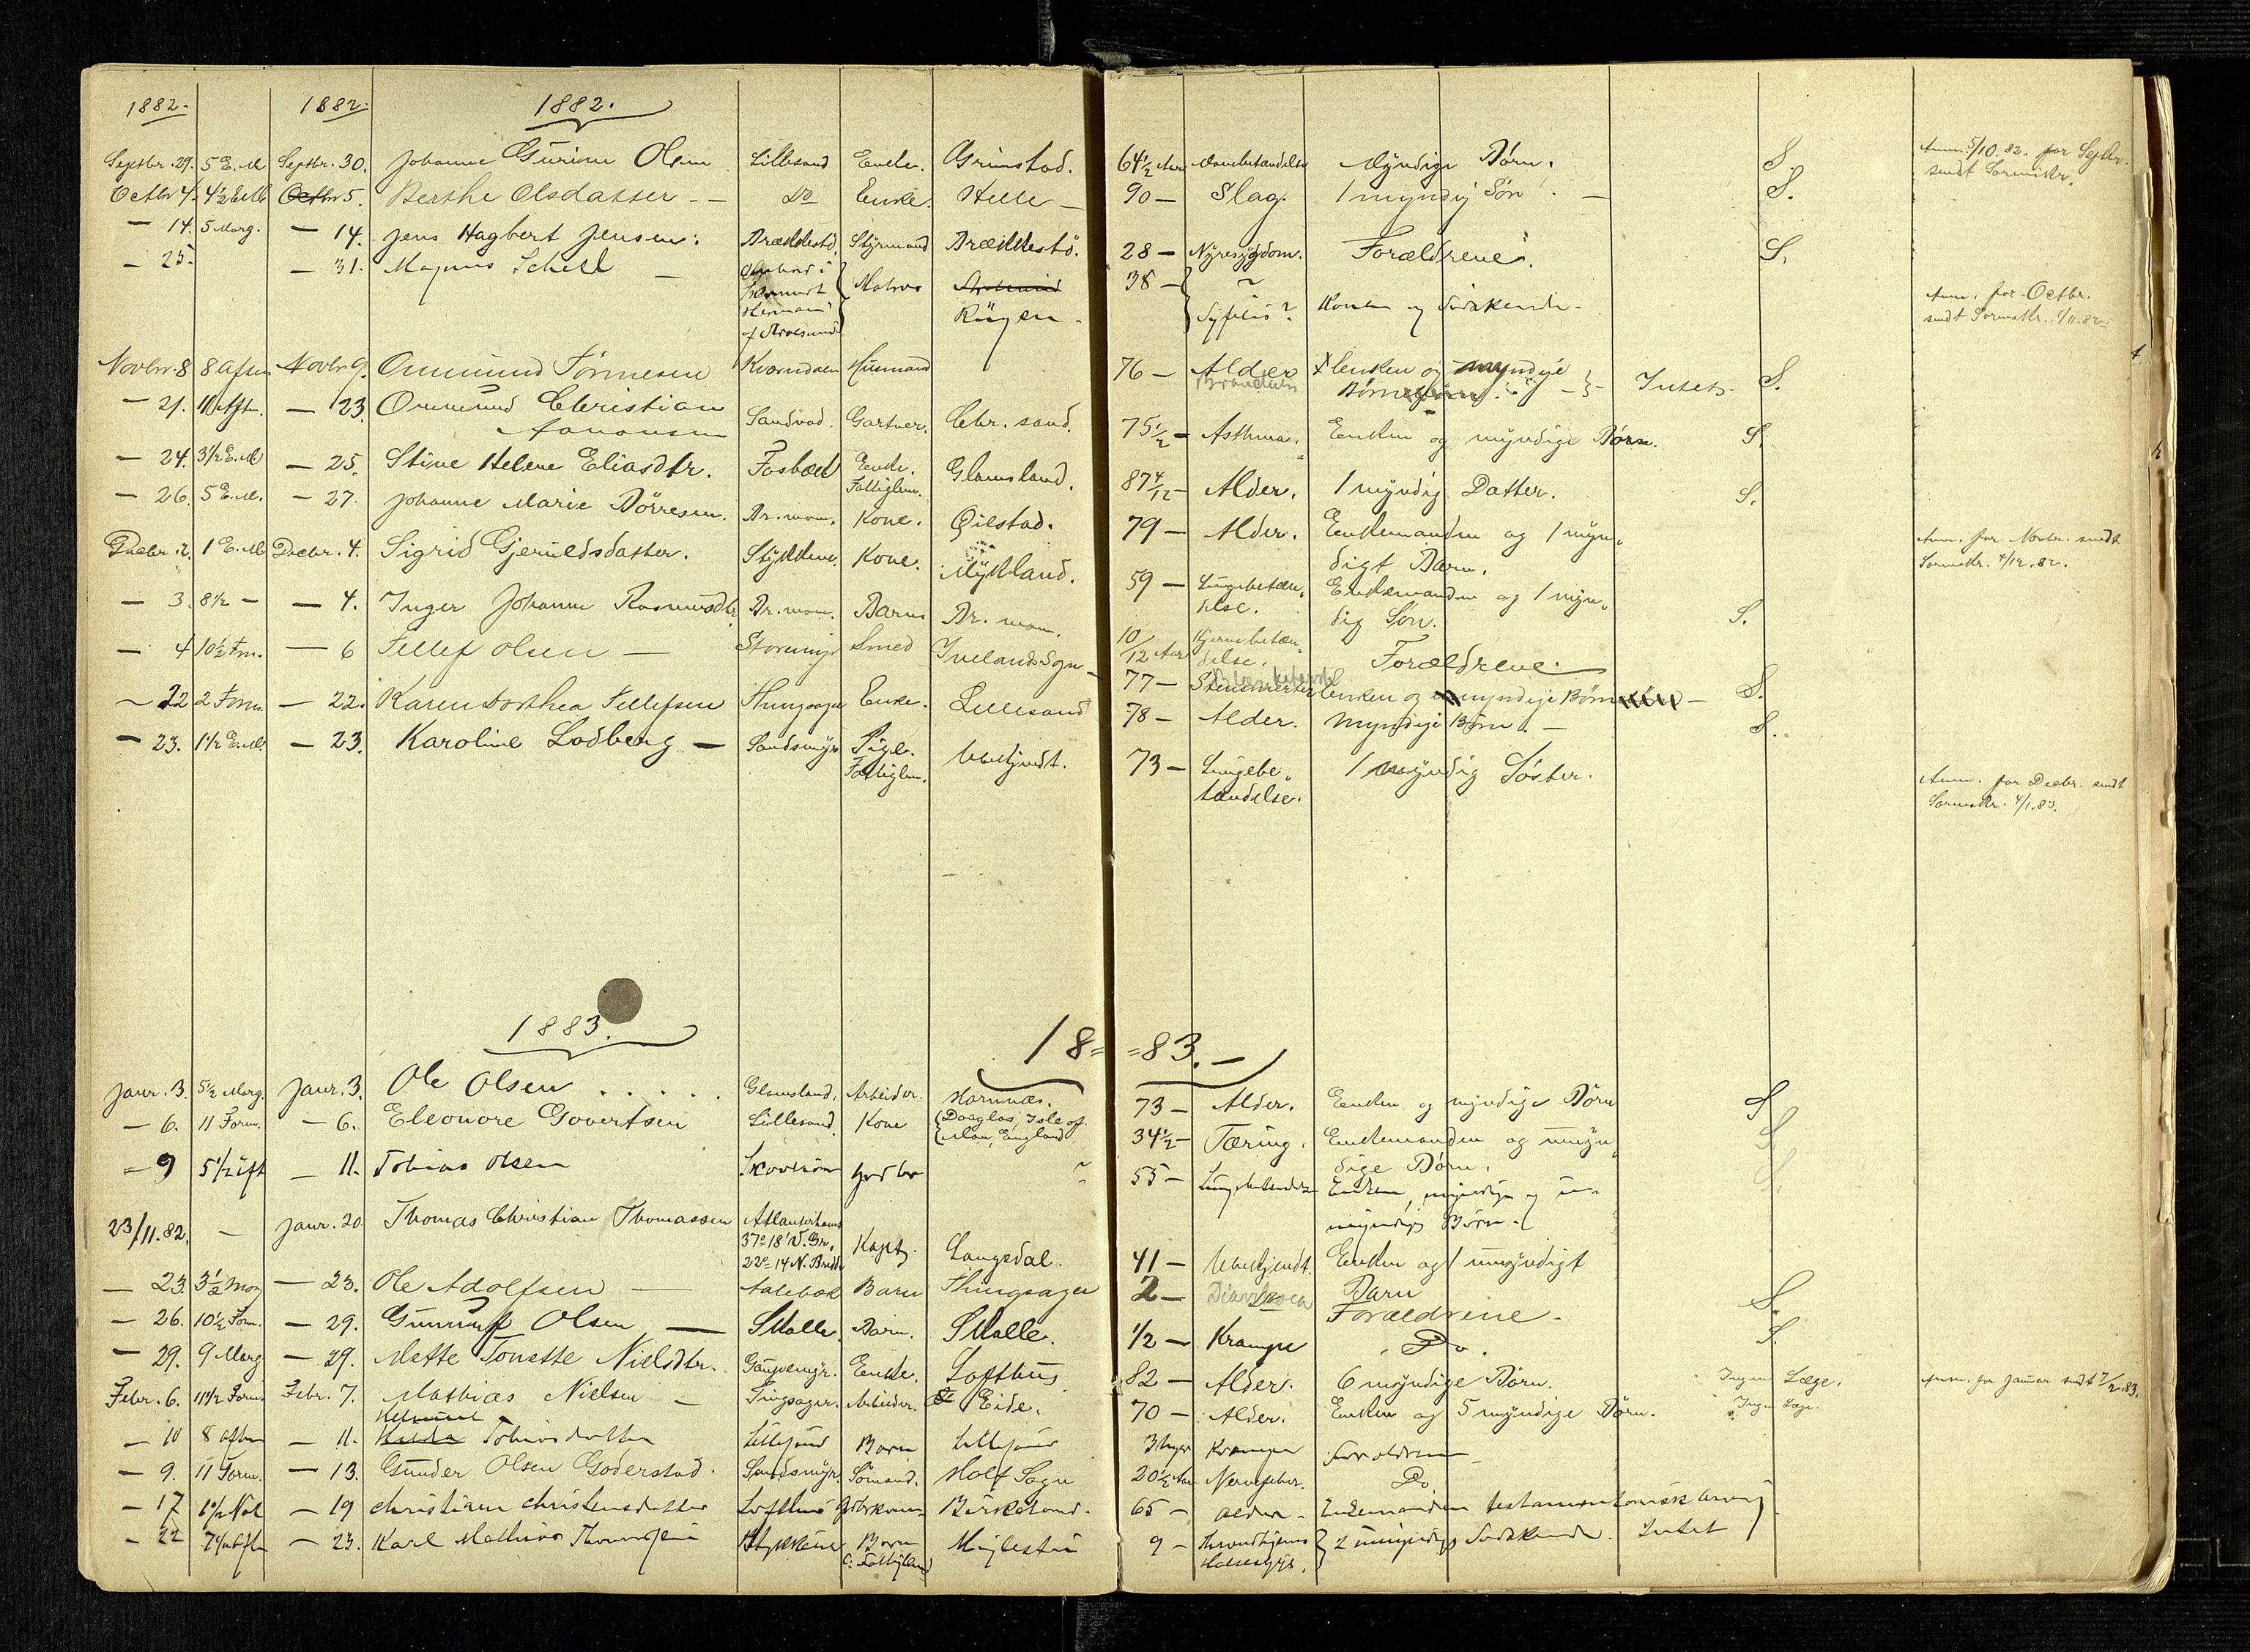 1882. 1882. 1882.
Septbr. 29. 5 E. M Septbr. 30. Johanne Gurine Olsen Lillesand Enke. Grimstad. 64 1/2 Aar Myndige Børn. S. Anm. 5/10.82. for Septbr.
sendt Sorenskr.
Octbr 4. 4 1/2 E M Octbr 5. Berthe Olsdatter - - Do Enke. Helle - 90 - Slag. 1 myndig Søn - S.
- 14. 5 Morg. - 14. Jens Hagbert Jensen. Brækkestø Styrmand Brækkestø. 28 - Nyresygdom. Forældrene. S.
- 25. - 31. Magnus Schell - Matros Rügen - 38 - Syfilis? Konen og Sødskende - Anm. for Octbr.
sendt Sorenskr. 1/11.82.
Novbr. 8 8 Aften Novbr. 9. Ommund Tønnesen Kværndalen Husmand 76 - Alder Enken og myndige
Børn - Intet - S.
- 21. 11 Aft. - 23 Ommund Christian
Aanonsen Sandvad. Gartner. Chr. sand. 75 1/2 - Asthma. Enken og myndige Børn. S.
- 24. 3 1/2 E. M - 25. Stine Helene Eliasdtr. Fosbæk Enke.
Fattiglem. Glamsland. 87 4/12 - Alder. 1 myndig Datter. S.
- 26. 5 E. M. - 27. Johanne Marie Børresen. Br. mom. Kone. Qilstad. 79 - Alder. Enkemanden og 1 myn-
digt Barn. Anm. for Novbr. sendt
Sorenskr. 4/12.82.
Decbr. 2. 1 E. M Decbr. 4. Sigrid Gjeruldsdatter. Stykkene. Kone. Mykland. 59 - Lungebetæn-
delse. Enkemanden og 1 myn-
dig Søn. S.
- 3. 8 1/2 - - 4. Inger Johanne Rasmusdtr. Br. mom. Barn Br. mom. 10/12 Aar Hjernebetæn-
delse. Forældrene.
- 4 10 1/2 Fm. - 6 Tellef Olsen - Storemyr Smed Ivelands Sogn - 77 - Enken og myndige Børn - S.
- 22 2 Form. - 22. Karen Dorthea Tellefsen Thingsager Enke. Lillesand 78 - Alder. myndige Børn. - S.
- 23. 1 1/2 E. M. - 23. Karoline Lodberg - Sandsmyr Pige.
Fattiglem. Ubekjendt. 73 - Lungebe-
tændelse. 1 myndig Søster. Anm. for Decbr. sendt
Sorenskr. 4/1.83.
1883. 18= =83. -
Janr. 3. 5 1/2 Morg. Janr. 3. Ole Olsen . . . . . Glamsland. Arbeider. Hornnæs. 73 - Alder. Enken og myndige Børn S
- 6. 11 Form. - 6. Eleonore Govertsen Lillesand Kone Douglas, Isle of
Man, England. 34 1/2 - Tæring. Enkemanden og umyn-
dige Børn. S
- 9 5 1/2 Eft - 11. Tobias Olsen 55 - Enken, myndige og u-
myndige Børn.
23/11.82. - Janr. 20 Thomas Christian Thomassen Atlanterhavet
37° 18' V. Gr.
22° 14 N. Bredde Kapt. Langedal. 41 - Ubekjendt. Enken og 1 umyndigt
Barn
- 23. 3 1/2 Mor - 23. Ole Adolfsen - Aalebæk Barn Thingsager 2 - Diarrhoea Forældrene - S.
- 26. 10 1/2 Form. - 29. Gunnuf Olsen - Skalle. Barn. Skalle. 1/2 - Krampe Do. S.
- 29. 9 Morg - 29. Mette Tonette Nielsdtr. Gaupemyr. Enke. Lofthus 82 - Alder. 6 myndige Børn. Ingen Læge. Anm. for Januar sendt 7/2.83.
Febr. 6. 11 1/2 Form. Febr. 7. Mathias Nielsen - Tingsager. Arbeider. Eide. 70 - Alder. Enken og 5 myndige Børn. Ingen Læge.
- 10 8 Aften - 11. Tobiasdatter Lillesand Barn Lillesand 3 Krampe Forældrene -
- 9. 11 Form. - 13. Gunder Olsen Goderstad. Sandsmyr. Sømand. Holt Sogn 20 1/2 Aar Nervefeber. Do
- 17 - 19 Christiane Christensdatter Lofthus Birkeland. 65 - Alder - Enkemanden testamentarisk Arving
- 22 - 23. Karl Mathias Thomassen Stykkene Barn
Fattiglem 9 - 2 umyndige Sødskende. Intet